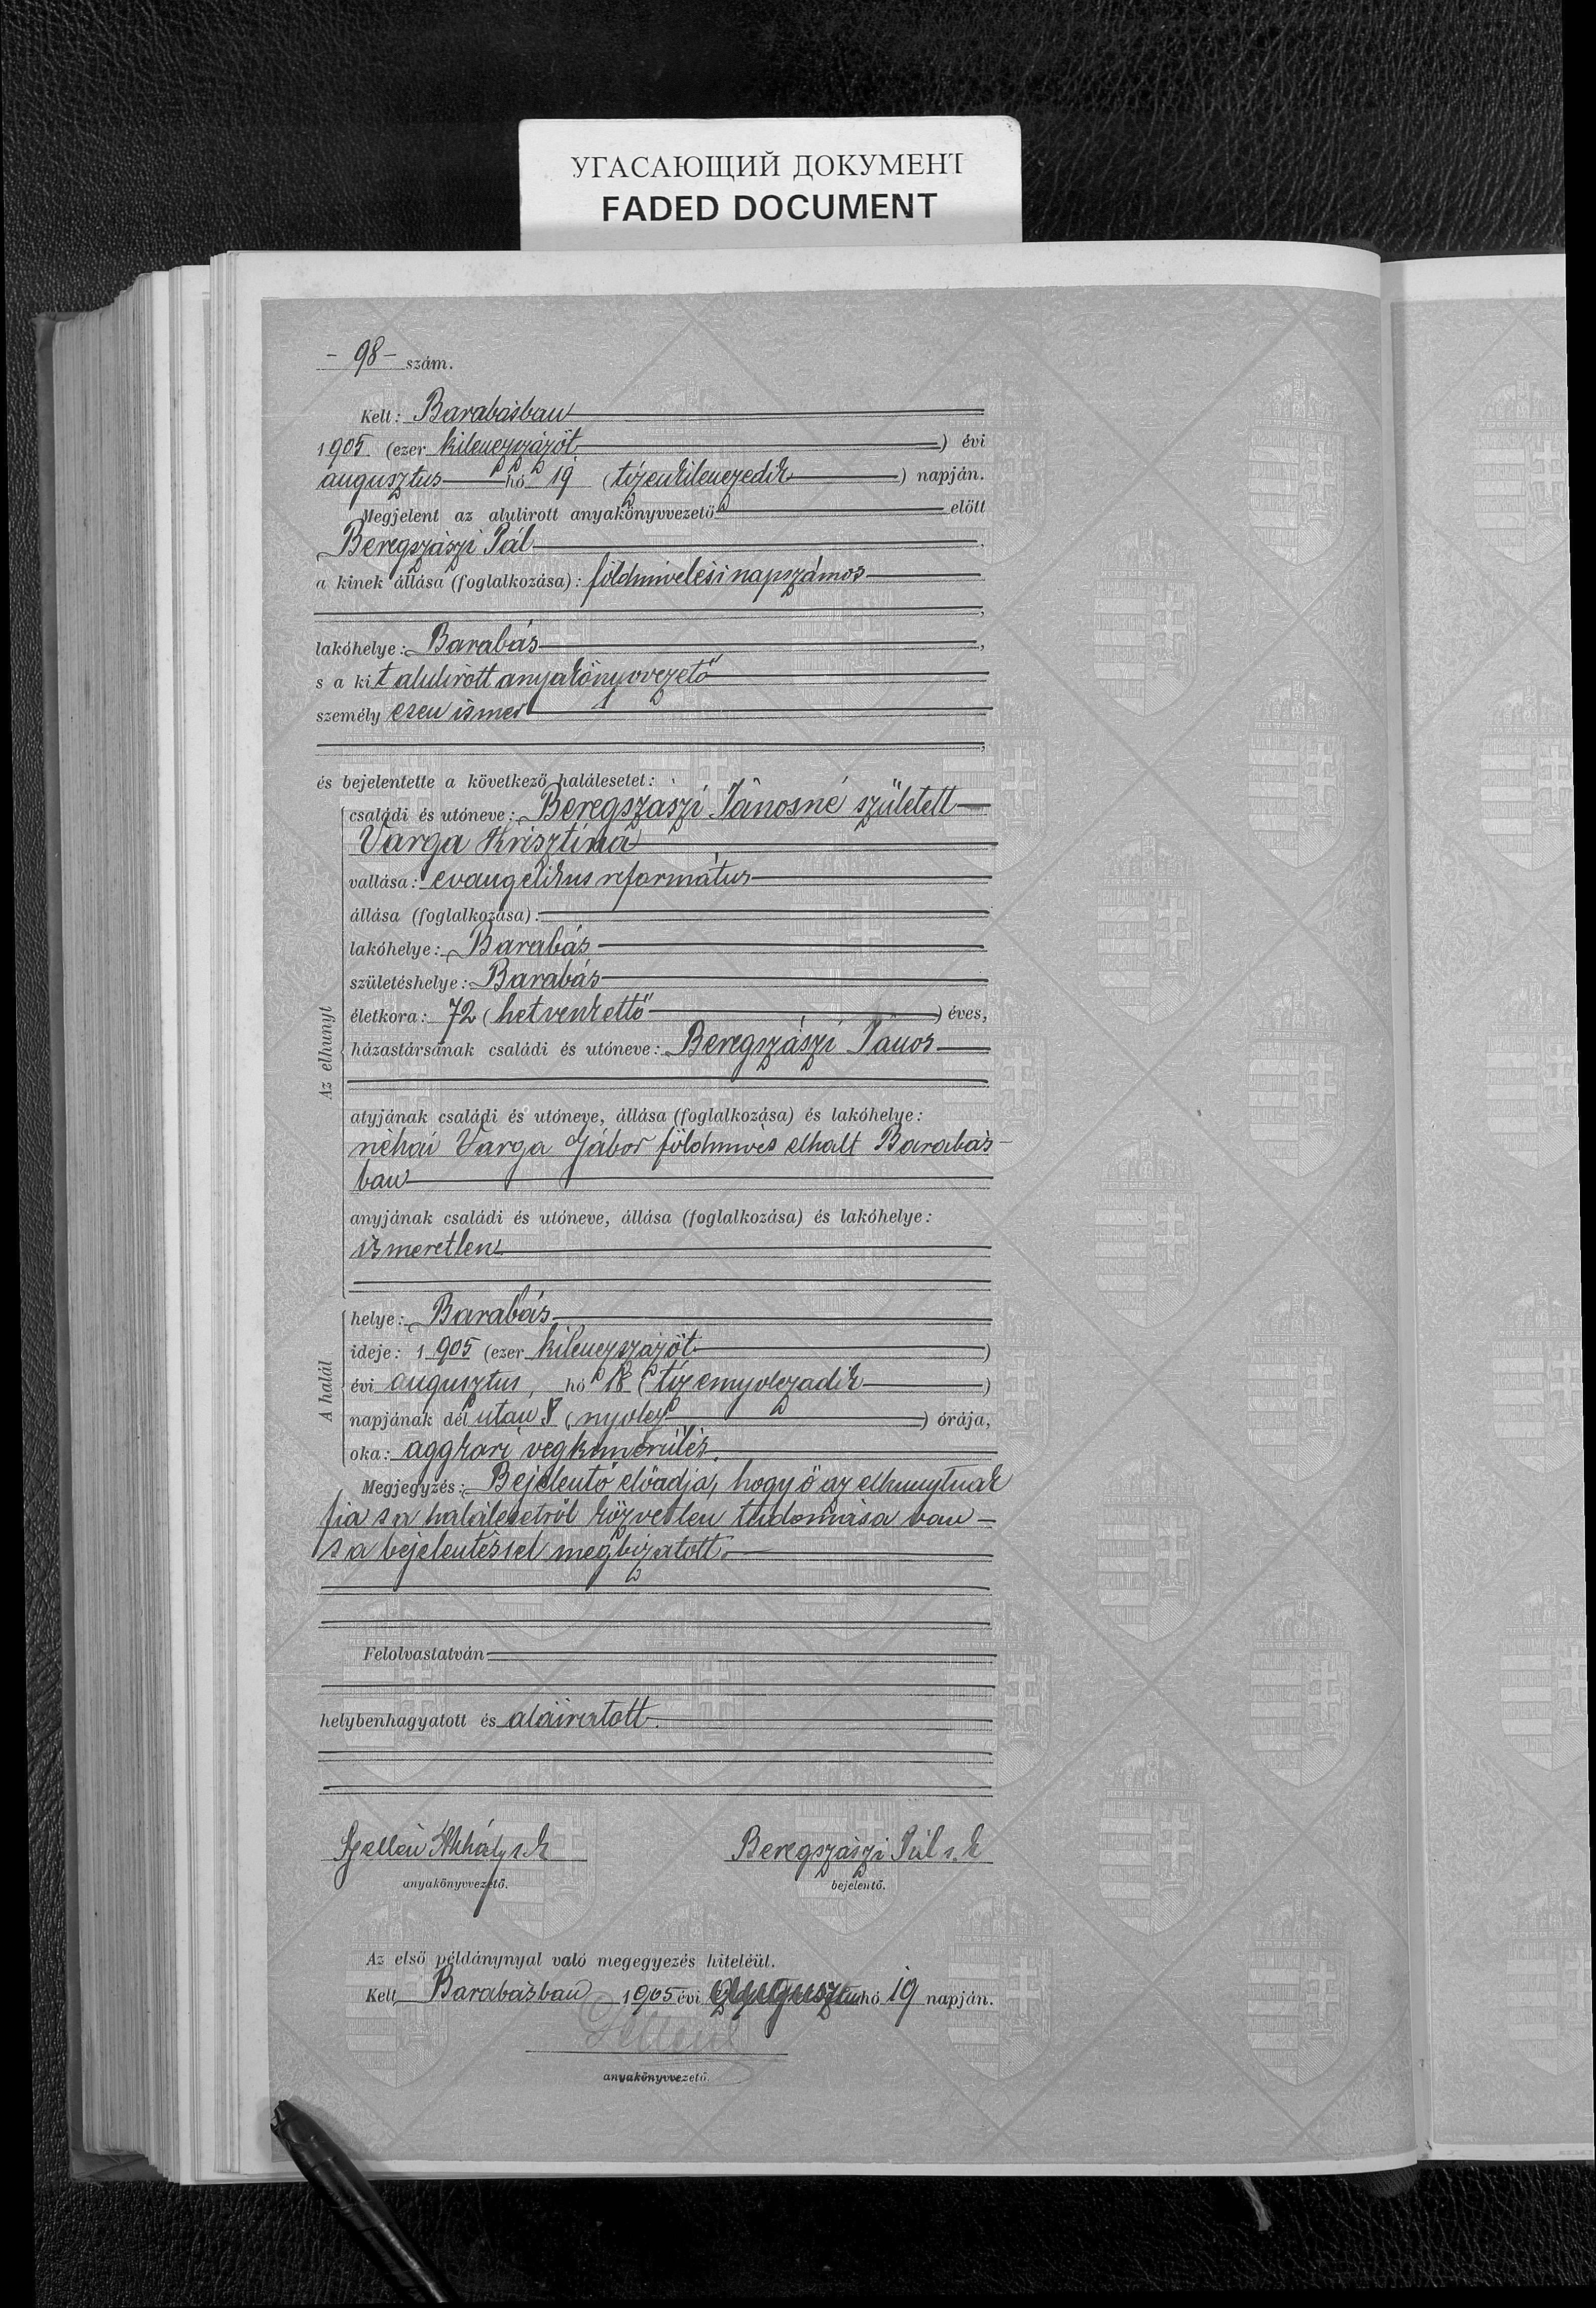 УГАСАЮЩИЙ ДОКУМЕНТ
FADED DOCUMENT
- 98 - szám.
Kelt: Barabásban
1905. (ezer kilenczszázöt) évi
augusztus hó 19 (tizenkilenczedik) napján.
Megjelent az alulirott anyakönyvvezető előtt
Beregszászi Pál
a kinek állása (foglalkozása): földmivelési napszámos
lakóhelye: Barabás,
s a kit alulirott anyakönyvvezető
személyesen ismer
és bejelentette a következő halálesetet:
Az elhunyt
családi és utóneve: Beregszászi Jánosné született
Varga Krisztina
vallása: evangelikus református
állása (foglalkozása):
lakóhelye: Barabás
születéshelye: Barabás
életkora: 72 (hetvenkettő) éves,
házastársának családi és utóneve: Beregszászi János
atyjának családi és utóneve, állása (foglalkozása) és lakóhelye:
néhai Varga Gábor földmives elhalt Barabás-
ban
anyjának családi és utóneve, állása (foglalkozása) és lakóhelye:
ismeretlen
A halál
helye: Barabás
ideje: 1905 (ezer kilenczszázöt)
évi augusztus, hó 18 (tizennyolczadik)
napjának dél után 8 (nyolcz) órája,
oka: aggkori végkimerülés.
Megjegyzés: Bejelentő előadja, hogy ő az elhunytnak
fia s a halálesetről közvetlen tudomása van -
s a bejelentéssel megbizatott.
Felolvastatván
helybenhagyatott és aláiratott.
Mihály s. k
anyakönyvvezető.
Beregszászi Pál s. k
bejelentő.
Az első példánynyal való megegyezés hiteléül.
Kelt Barabásban 1905 évi augusztus hó 19 napján.
anyakönyvvezető.